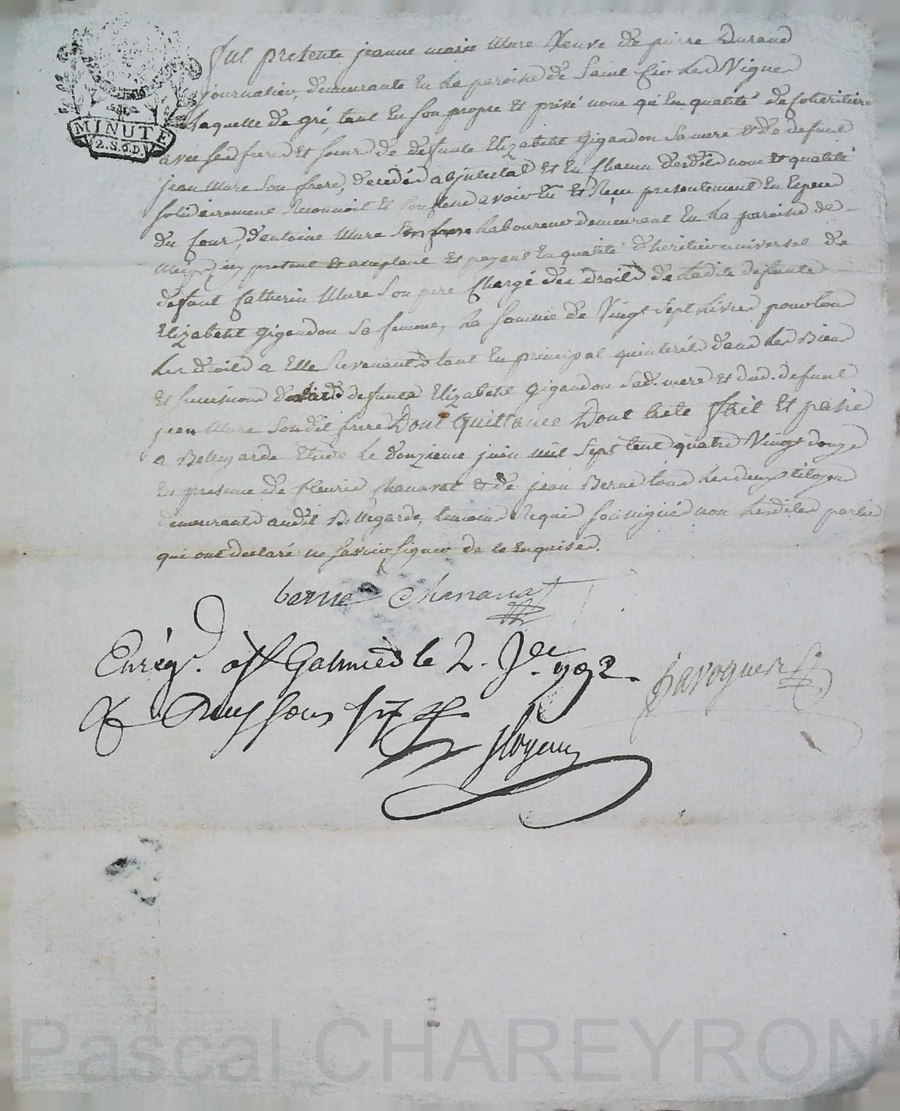 MINUTE
2. S. 6. D.
Fut presente jeanne marie Mure Veuve de pierre Durand
journalier, demeurante En La paroisse de Saint Cir Les Vignes
Laquelle de gré, tant En Son propre Et privé nom qu'En qualité de Coheritiere
avec Ses freres et soeurs de defunte Elizabeth Gigandon Sa mere et de defunt
jean Mure Son frere, decedés abjntestat et En Chacun desdits noms et qualités
solidairement Reconnoit et Confesse avoir Eu et Reçu presentement En Especes
du Cours, d'antoine Mure Son frere Laboureur demeurant En La paroisse de
jcy present et acceptant Et payant En qualité d'heritier universel de
defunt Catherin Mure Son pere Chargé des droits de Ladite defunte
Elizabeth Gigandon Sa femme, La Somme de Vingt Sept Livres pour tous
Les droits a Elle Revenants tant En principal qu'interets dans Les Biens
et Successions de defunte Elizabeth Gigandon Sad. mere et dud. defunt
jean Mure Sondit frere Dont Quittance Dont acte Fait Et passé
a Bellegarde Etude Le Onzieme juin mil Sept Cent quatre Vingt douze
En presence de fleurie Chanavat et de jean Berne tous Les deux Citoyens
demeurants audit Bellegarde, temoins Requis Soussignés non Lesdites parties
qui ont declaré ne Savoir Signer de ce Enquises.
berne Chanavat
Enrég. à St Galmier le 2. Jlet 1792.
javogues
R. Quinze sous